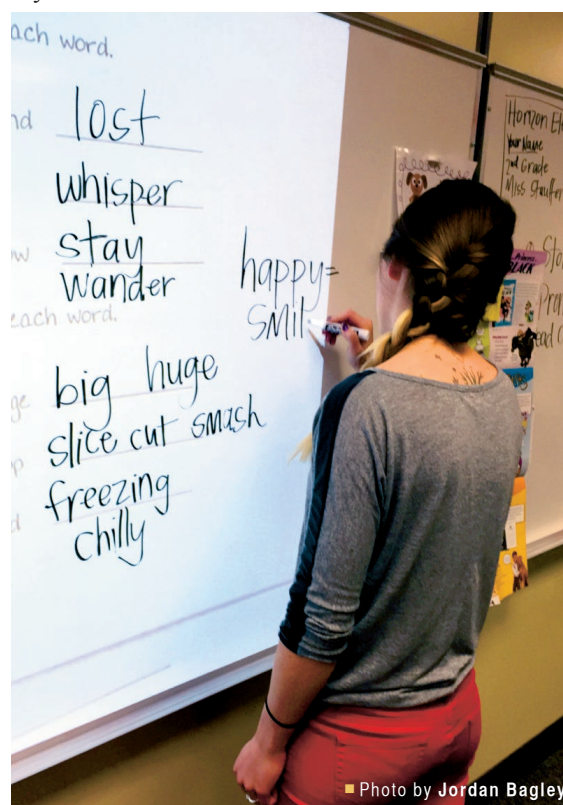 each word.
lost
whisper
stay
wander
each word.
big huge
slice cut smash
freezing
chilly
happy=
smil
Horizon Ele
Your Name
2nd Grade
Miss Stauffer
BLACK
Photo by Jordan Bagley